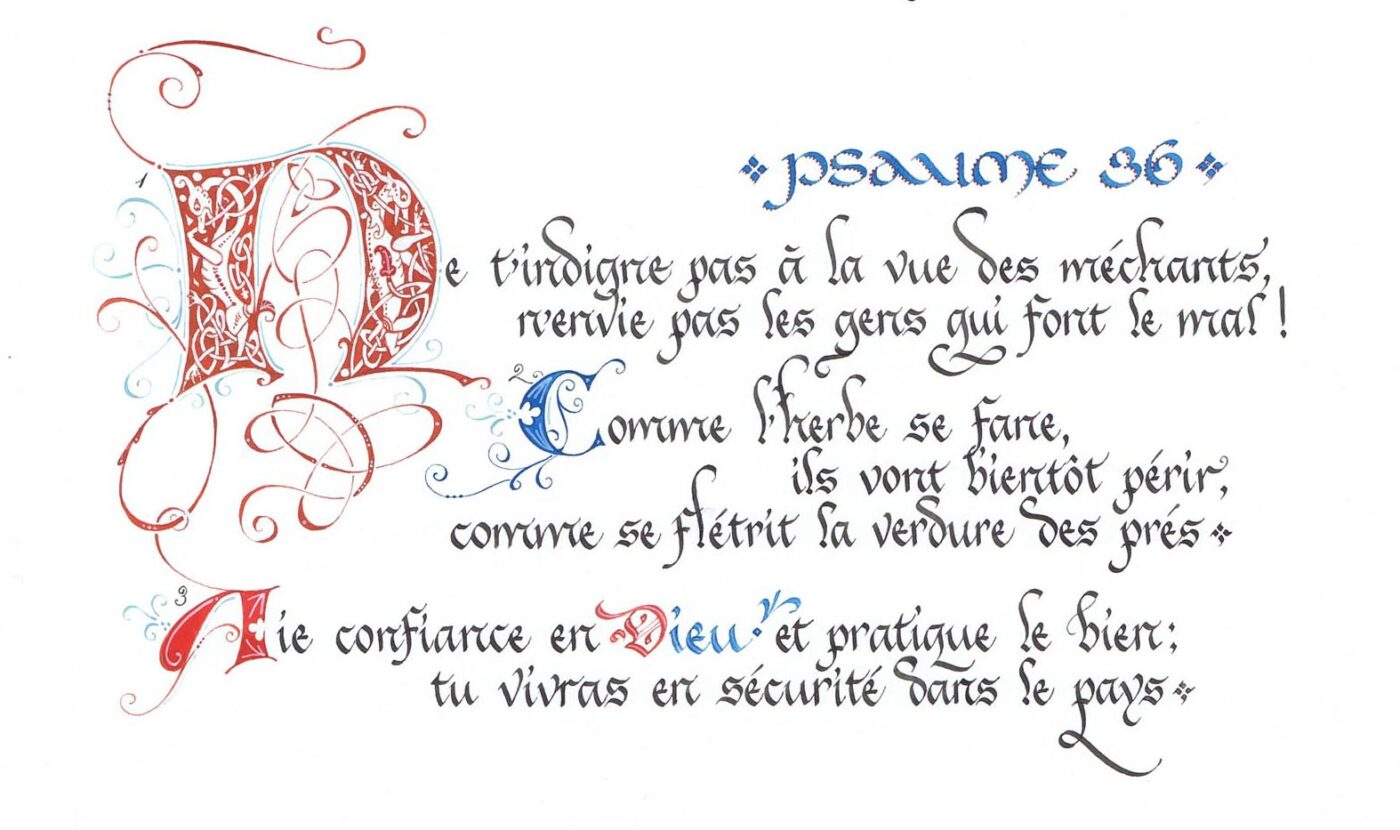 Psaume 36
1 Ne t'indigne pas à la vue des méchants,
n'envie pas les gens qui font le mal !
2 Comme l'herbe se fane,
ils vont bientôt périr,
comme se flétrit la verdure des prés
3 Aie confiance en Dieu et pratique le bien ;
tu vivras en sécurité dans le pays